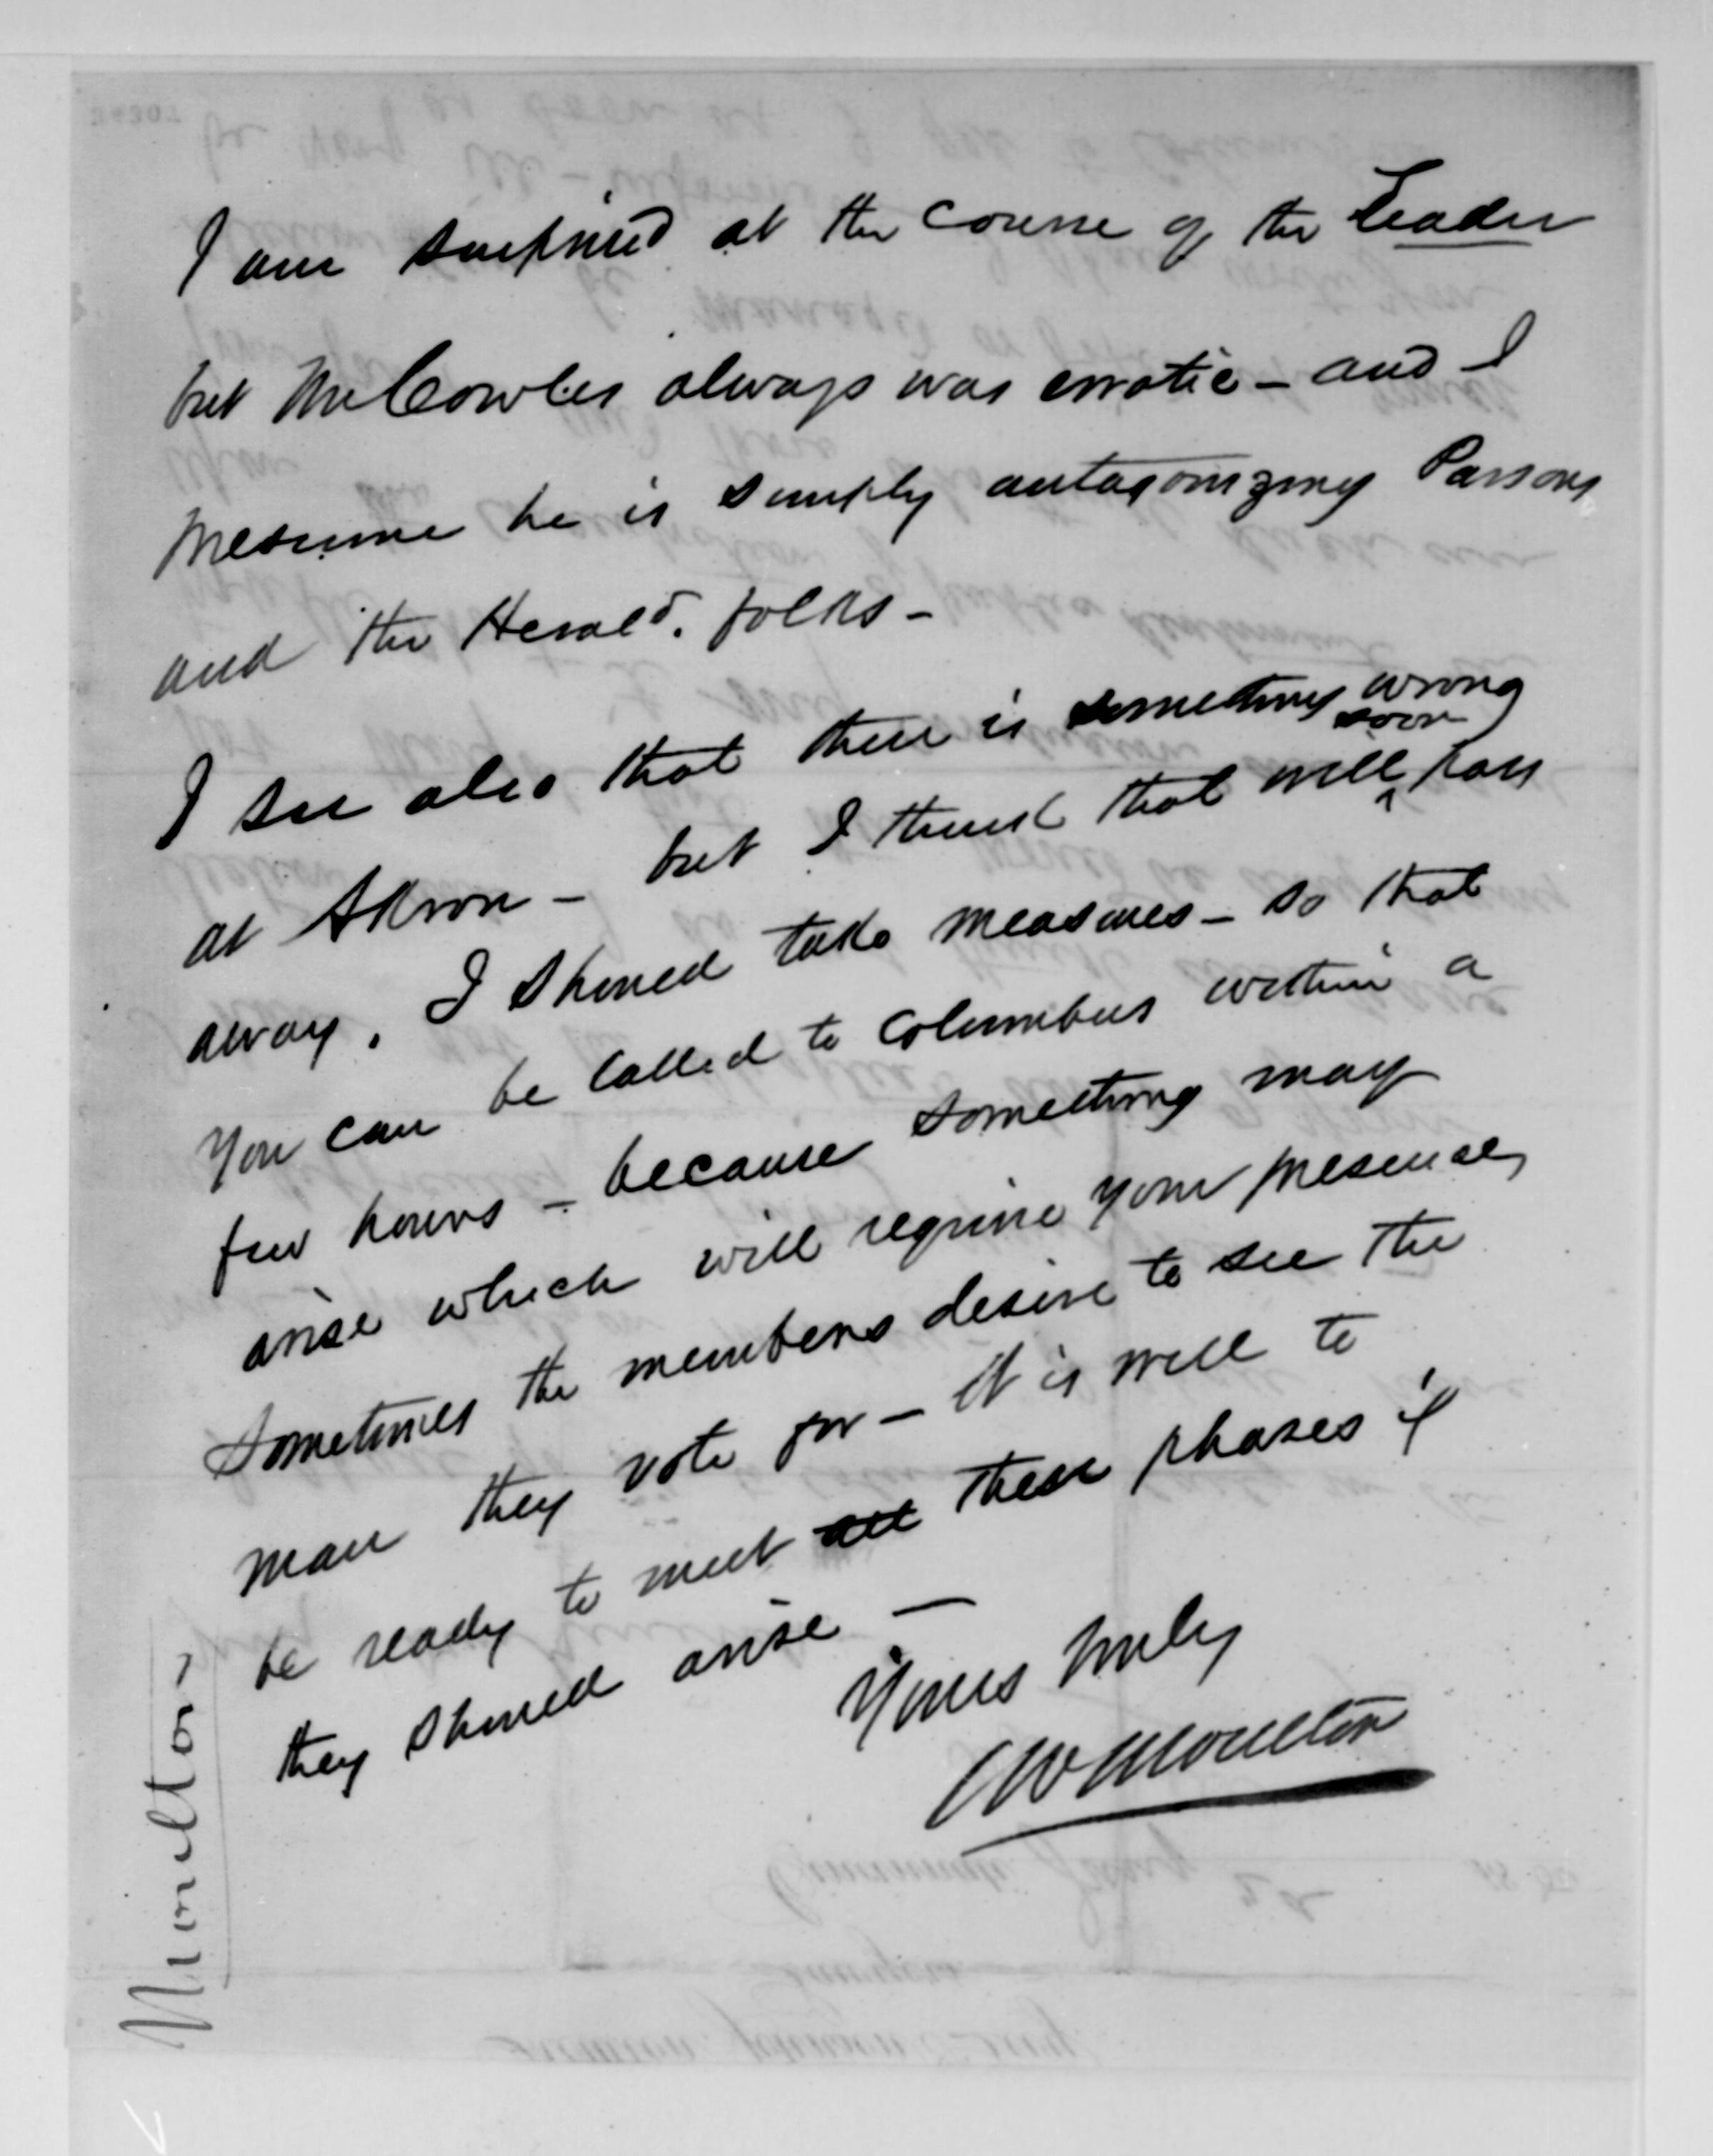 I am surprised at the course of the Leader
but Mr Cowles always was erratic – and I
presume he is simply antagonizing Parsons
and the Herald. folks –
I see also that there is something wrong
at Akron – but I think that will soon pass
away. I should take measures – so that
you can be called to Columbus within a
few hours – because something may
arise which will require your presence,
Sometimes the members desire to see the
man they vote for – it is well to
be ready to meet all these phases if
they should arise —
Yours truly
CW Moulton
Moulton